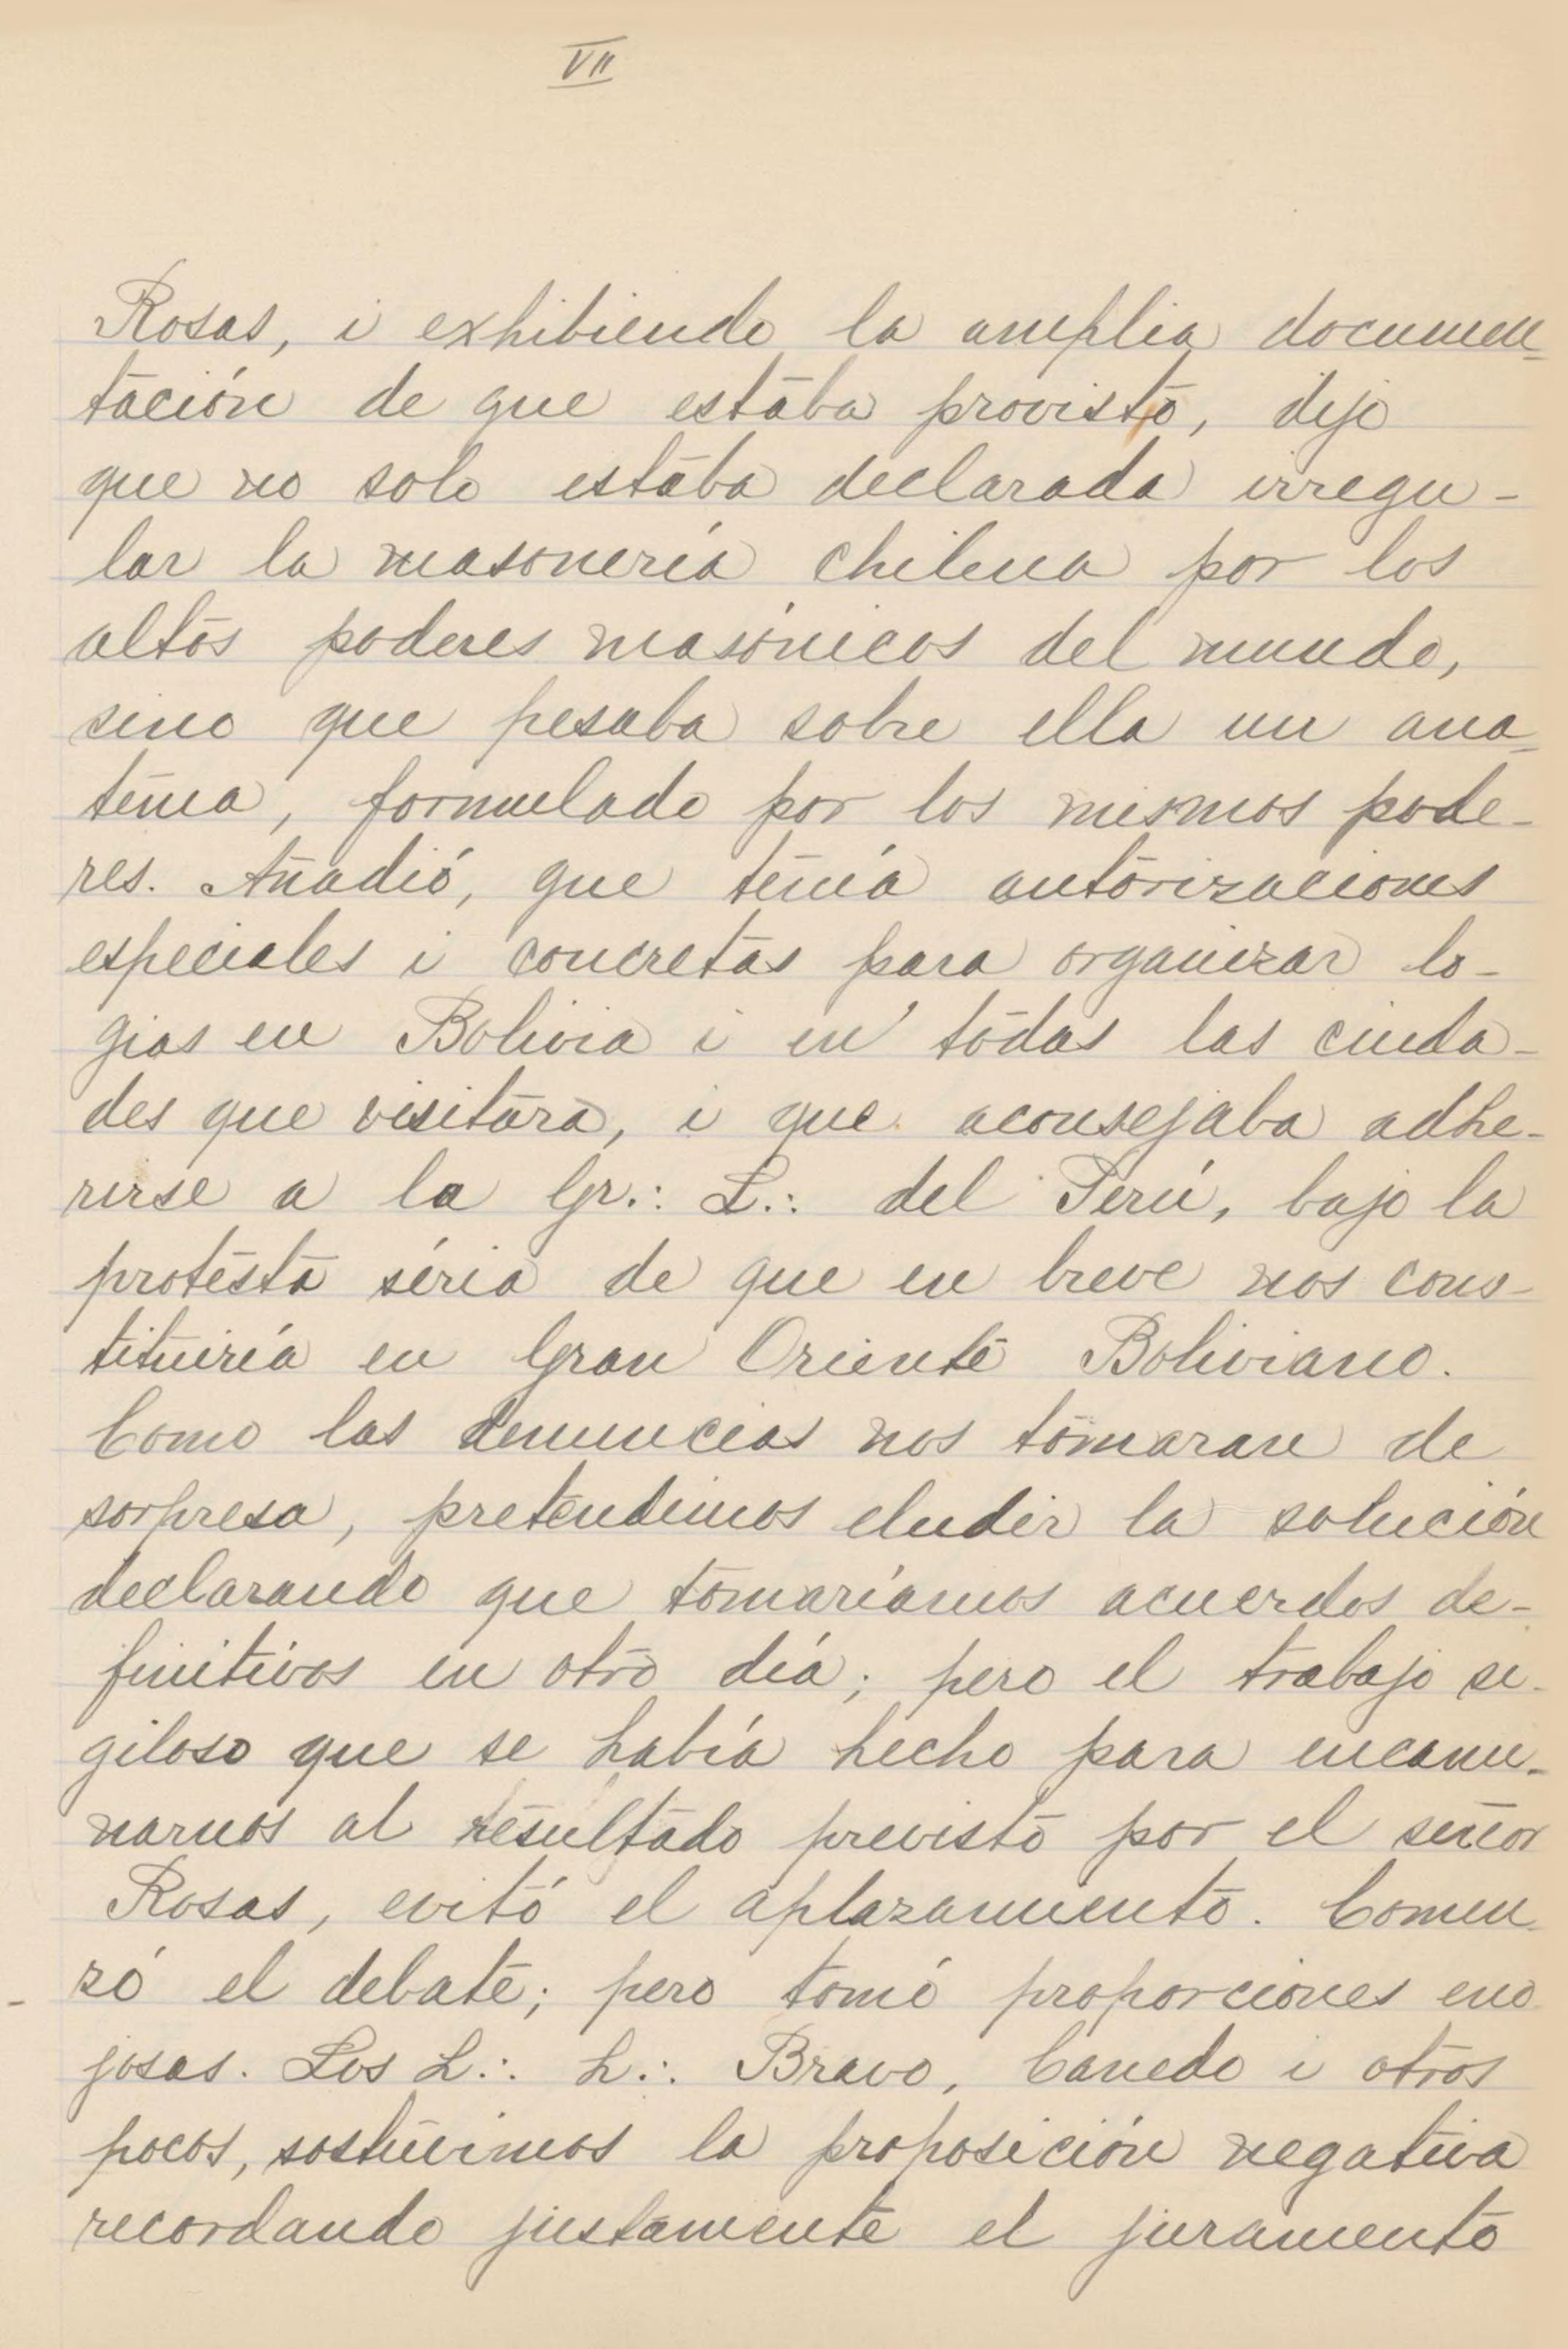 VII
Rosas, i exhibiendo la amplia documen-
tación de que estaba provisto, dijo
que no solo estaba declarada irregu-
lar la masonería chilena por los
altos poderes masónicos del mundo,
sino que pesaba sobre ella un ana-
tema, formulado por los mismos pode-
res. Añadió, que tenía autorizaciones
especiales i concretas para organizar lo-
gias en Bolivia i en todas las ciuda-
des que visitara, i que aconsejaba adhe-
rirse a la Gr.: L.: del Perú, bajo la
protesta séria de que en breve nos cons-
tituiría en Gran Oriente Boliviano.
Como las denuncias nos tomaran de
sorpresa, pretendimos eludir la solución
declarando que tomaríamos acuerdos de-
finitivos en otro día; pero el trabajo si-
giloso que se había hecho para encami-
narnos al resultado previsto por el señor
Rosas, evitó el aplazamiento. Comen
zó el debate; pero tomó proporciones eno
josas. Los L.: L.: Bravo, Canedo i otros
pocos, sostuvimos la proposición negativa
recordando justamente el juramento